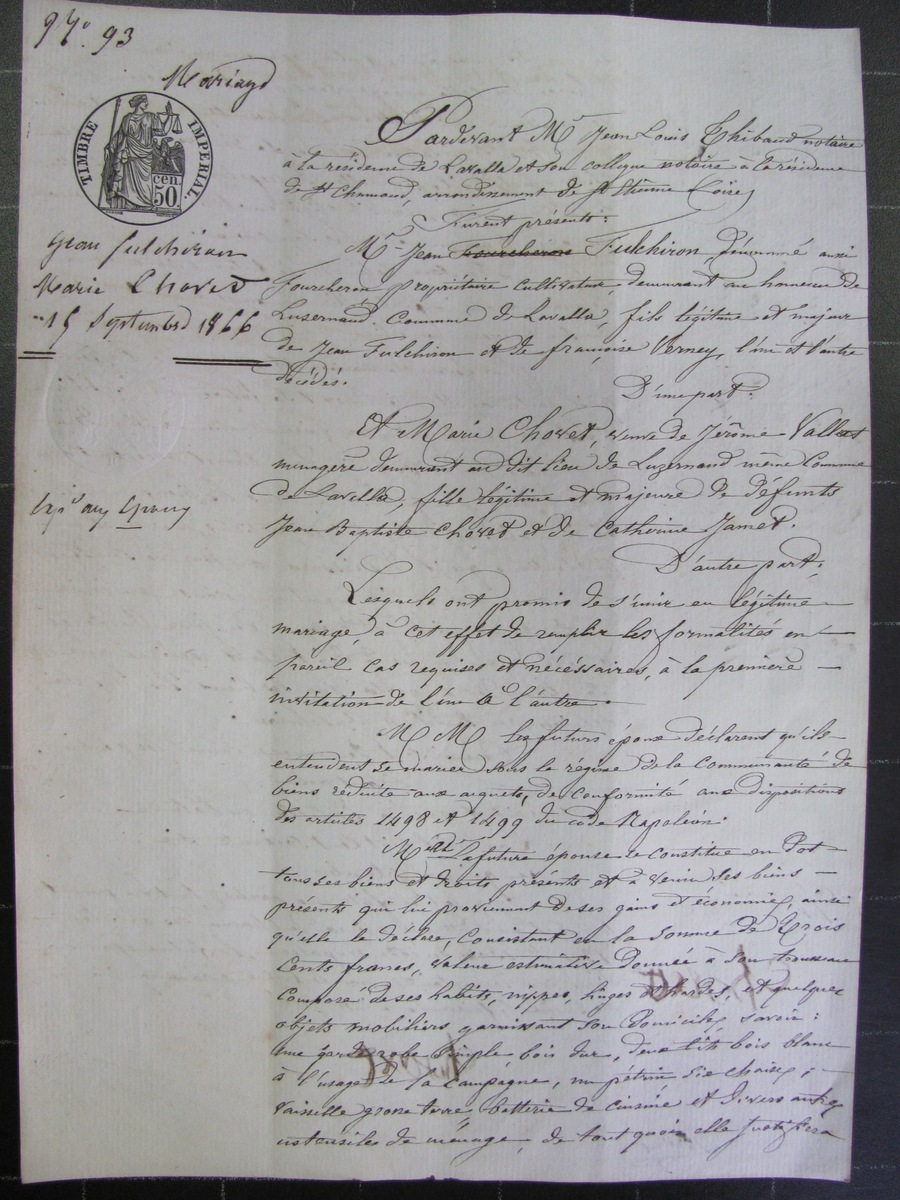 N.° 93
Mariage
TIMBRE IMPERIAL.
50 cen.
Jean fulchiron
Marie Chovet
15 Septembre 1866
Pardevant Me Jean Louis Thibaud notaire
à la résidence de Lavalla et son collègue notaire à la résidence
de St Chamond, arrondissement de St Etienne (Loire)
Furent présents:
Mr Jean Fourcheron Fulchiron, dénommé aussi
Fourcheron propriétaire cultivateur, demeurant au hameau de
Luzernaud Commune de Lavalla, fils légitime et majeur
de Jean Fulchiron et de françoise Verney, l'un et l'autre
décédés.
D'une part.
Et Marie Chovet, veuve de Jérôme Vallet
menagère demeurant au dit lieu de Luzernaud même Commune
de Lavalla, fille légitime et majeure de défunts
Jean Baptiste Chovet et de Catherine Jamet.
D'autre part;
Lesquels ont promis de s'unir en légitime
mariage, à cet effet de remplir les formalités en
pareil cas requises et nécéssaires, à la première
invitation de l'un à l'autre.
M M les futurs époux déclarent qu'ils
entendent se marier sous le régime de la Communauté de
biens réduite aux aquets, de conformité aux dispositions
des articles 1498 et 1499 du code Napoléon.
Melle La future épouse se constitue en Dot
tous ses biens et droits présents et à venir ses biens
présents qui lui proviennent de ses gains et économies, ainsi
qu'elle le déclare, Consistant en la Somme de Trois
Cents francs, valeur estimative donnée à son trousseau
Composé de ses habits, nippes, linges et hardes, et quelques
objets mobiliers garnissant son domicile, savoir:
une garderobe simple bois dur, deux lits bois blanc
à l'usage de la Campagne, un pétrin six chaises,
Vaisselle grosse terre, batterie de cuisine et divers autres
ustensiles de ménage, de tout quoi elle justifiera